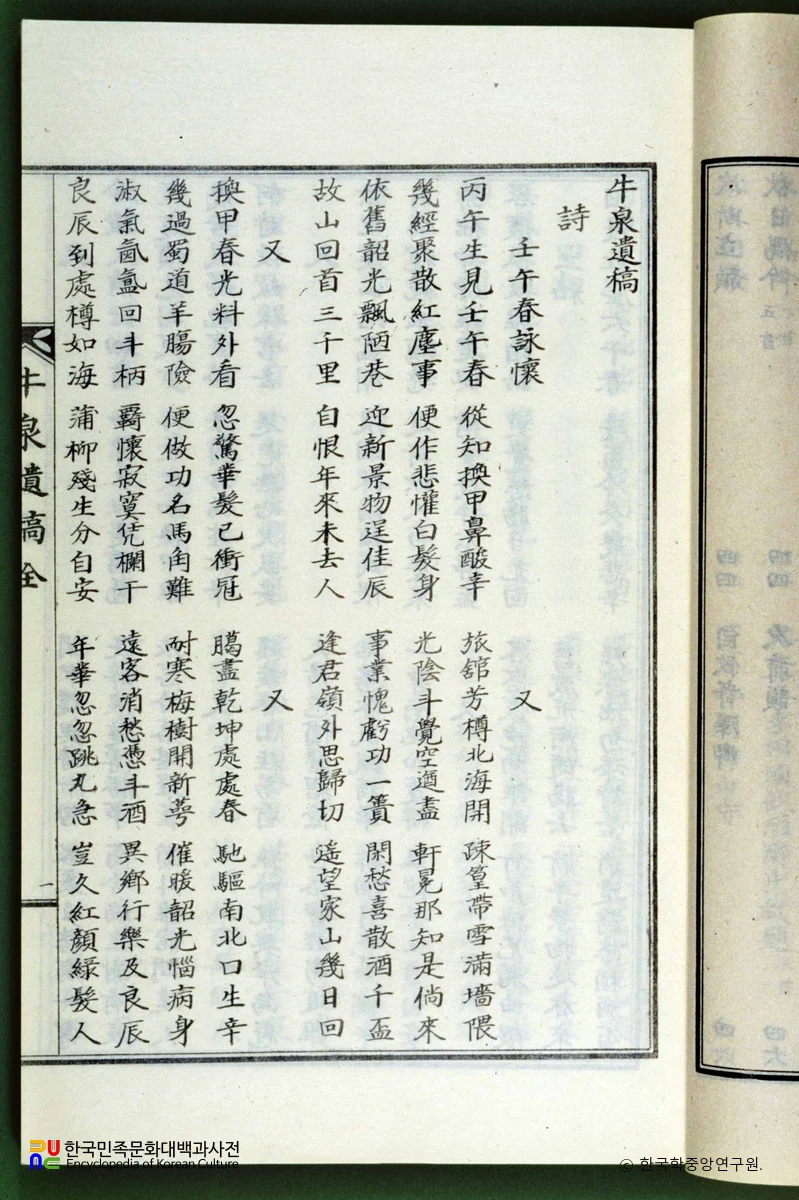 牛泉遺稿
詩
壬午春詠懷 又
丙午生見壬午春 從知換甲鼻酸辛 旅舘芳樽北海開 疎篁帶雪滿墻隈
幾經聚散紅塵事 便作悲懽白髮身 光陰斗覺空遒盡 軒冕那知是倘來
依舊韶光飄陋巷 迎新景物逞佳辰 事業愧虧功一簣 閒愁喜散酒千盃
故山回首三千里 自恨年來未去人 逢君嶺外思歸切 遙望家山幾日回
又 又
換甲春光料外看 忽驚華髮已衝冠 臈盡乾坤處處春 馳驅南北口生辛
幾過蜀道羊膓險 便做功名馬角難 耐寒梅樹開新萼 催暖韶光惱病身
淑氣氤氳回斗柄 覊懷寂寞凭欄干 遠客消愁憑斗酒 異鄉行樂及良辰
良辰到處樽如海 蒲柳殘生分自安 年華忽忽跳丸急 豈久紅顏綠髮人
牛泉遺稿全
一
한국민족문화대백과사전
Encyclopedia of Korean Culture
© 한국학중앙연구원.